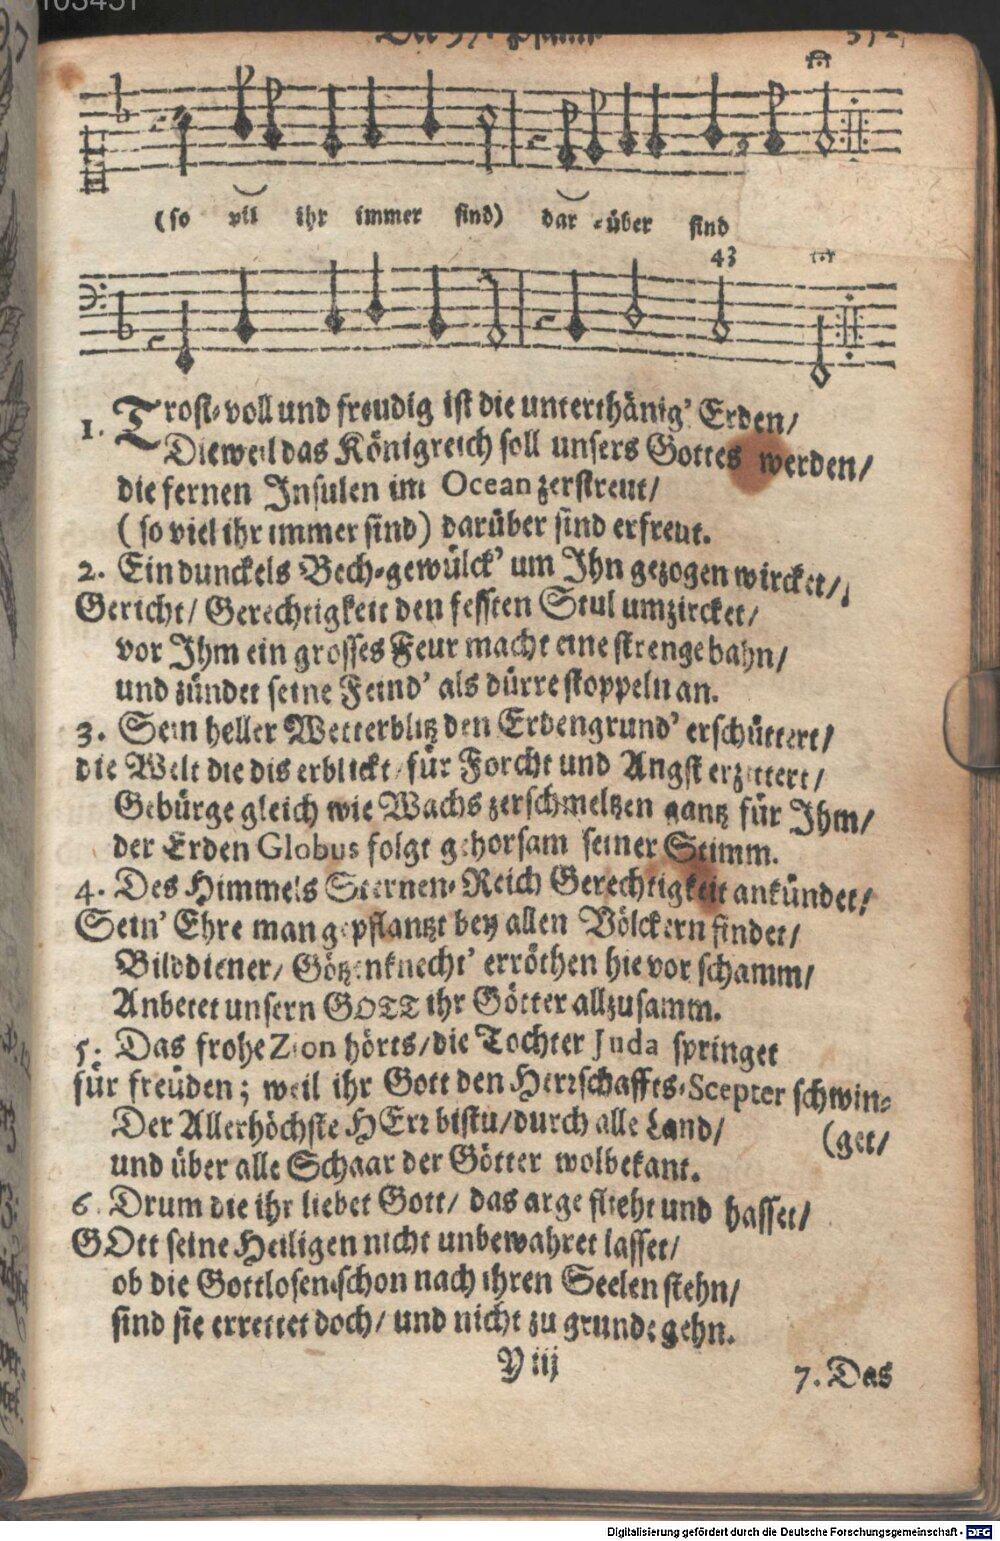 Der 97. Psalm.
(so vil ihr immer sind) dar-über sind
43
1. Trost-voll und freudig ist die unterthänig' Erden/
Dieweil das Königreich soll unsers Gottes werden/
die fernen Insulen im Ocean zerstreut/
(so viel ihr immer sind) darüber sind erfreut.
2. Ein dunckels Bech-gewülck' um Ihn gezogen wircket/
Gericht/ Gerechtigkeit den fessten Stul umzircket/
vor Ihm ein grosses Feur macht eine strenge bahn/
und zündet seine Feind' als dürre stoppeln an.
3. Sein heller Wetterblitz den Erdengrund' erschüttert/
die Welt die dis erblickt/ für Forcht und Angst erzittert/
Gebürge gleich wie Wachs zerschmeltzen gantz für Ihm/
der Erden Globus folgt gehorsam seiner Stimm.
4. Des Himmels Sternen-Reich Gerechtigkeit ankündet/
Sein' Ehre man gepflantzt bey allen Völckern findet/
Bilddiener/ Götzenknecht' erröthen hie vor schamm/
Anbetet unsern GOTT ihr Götter allzusamm.
5. Das frohe Zion hörts/ die Tochter Juda springet
für freüden; weil ihr Gott den Herrschaffts-Scepter schwin-
Der Allerhöchste HErr bistu/ durch alle Land/ (get/
und über alle Schaar der Götter wolbekant.
6. Drum die ihr liebet Gott/ das arge flieht und hasset/
GOtt seine Heiligen nicht unbewahret lasset/
ob die Gottlosen schon nach ihren Seelen stehn/
sind sie errettet doch/ und nicht zu grunde gehn.
Y iij
7. Das
Digitalisierung gefördert durch die Deutsche Forschungsgemeinschaft - DFG